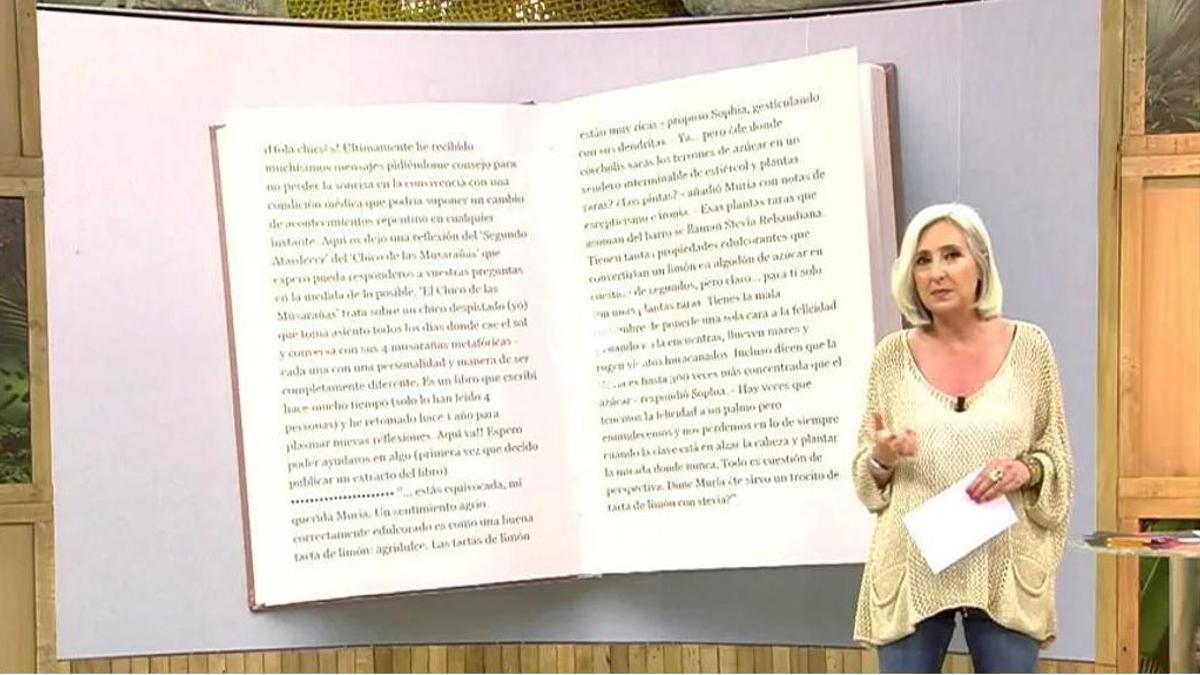 ¡Hola chic@s! Últimamente he recibido
muchísimos mensajes pidiéndome consejo para
no perder la sonrisa en la convivencia con una
condición médica que podría suponer un cambio
de acontecimientos repentino en cualquier
instante. Aquí os dejo una reflexión del 'Segundo
Atardecer' del 'Chico de las Musarañas' que
espero pueda responderos a vuestras preguntas
en la medida de lo posible. 'El Chico de las
Musarañas' trata sobre un chico despistado (yo)
que toma asiento todos los días donde cae el sol
y conversa con sus 4 musarañas metafóricas -
cada una con una personalidad y manera de ser
completamente diferente. Es un libro que escribí
hace mucho tiempo (solo lo han leído 4
personas) y he retomado hace 1 año para
plasmar nuevas reflexiones. Aquí va!! Espero
poder ayudaros en algo (primera vez que decido
publicar un extracto del libro)
...................... "... estás equivocada, mi
querida Muria. Un sentimiento agrio
correctamente edulcorado es como una buena
tarta de limón: agridulce. Las tartas de limón
están muy ricas - propuso Sophia, gesticulando
con sus dendritas. - Ya... pero ¿de donde
córcholis sacas los terrones de azúcar en un
sendero interminable de estiércol y plantas
raras? ¿Los pintas? - añadió Muria con notas de
escepticismo e ironía. - Esas plantas raras que
asoman del barro se llaman Stevia Rebaudiana.
Tienen tantas propiedades edulcorantes que
convertirían un limón en algodón de azúcar en
de segundos, pero claro... para ti solo
son unas plantas raras. Tienes la mala
de ponerle una sola cara a la felicidad
y cuando la encuentras, llueven mares y
rugen vientos huracanados. Incluso dicen que la
es hasta 300 veces más concentrada que el
azúcar - respondió Sophia. - Hay veces que
tenemos la felicidad a un palmo pero
enmudecemos y nos perdemos en lo de siempre
cuando la clave está en alzar la cabeza y plantar
la mirada donde nunca. Todo es cuestión de
perspectiva. Dime Muria ¿te sirvo un trocito de
tarta de limón con stevia?"